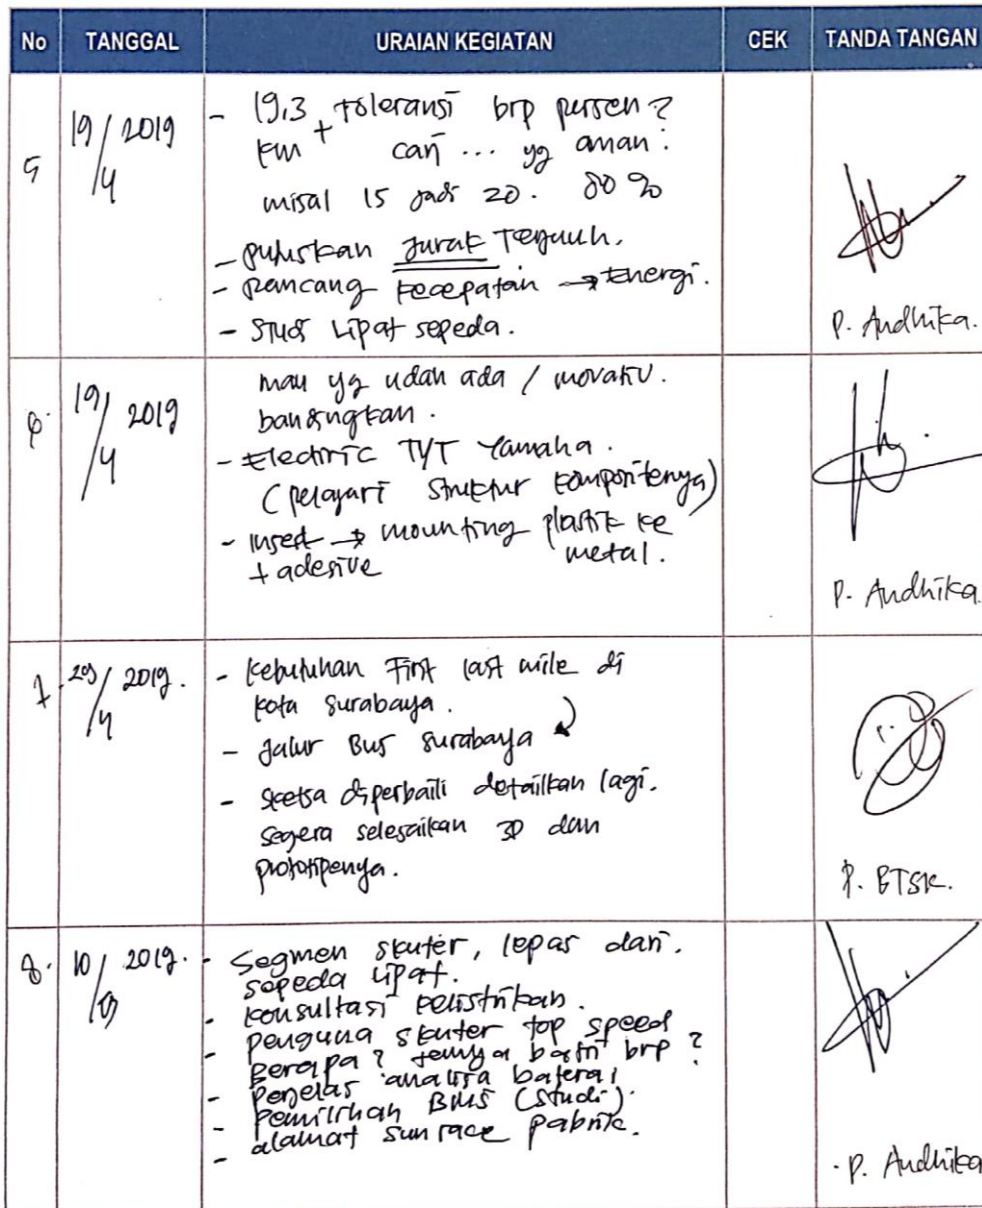 No TANGGAL URAIAN KEGIATAN CEK TANDA TANGAN
5 19/4 2019
- 19,3 + toleransi brp persen?
km cari ... yg aman.
misal 15 jadi 20. 80%
- putuskan jarak tempuh.
- rancang kecepatan → energi.
- studi lipat sepeda.
P. Andhika.
6. 19/4 2019
mau yg udah ada / inovatif.
bandingkan.
- Electric TYT Yamaha.
(pelajari struktur kompositenya)
- insert → mounting plastik ke
+ adesive metal.
P. Andhika.
7. 29/4 2019.
- kebutuhan First last mile di
kota surabaya.
- Jalur Bus surabaya
- sketsa diperbaiki detailkan lagi.
segera selesaikan 3D dan
prototipenya.
P. BTSK.
8. 10/ 2019.
- Segmen skuter, lepas dari.
sepeda lipat.
- konsultasi kelistrikan.
- pengguna skuter top speed
berapa? batri brp?
- perjelas analisa baterai
- Pemilihan BMS (studi).
- alamat sunrace pabrik.
P. Andhika